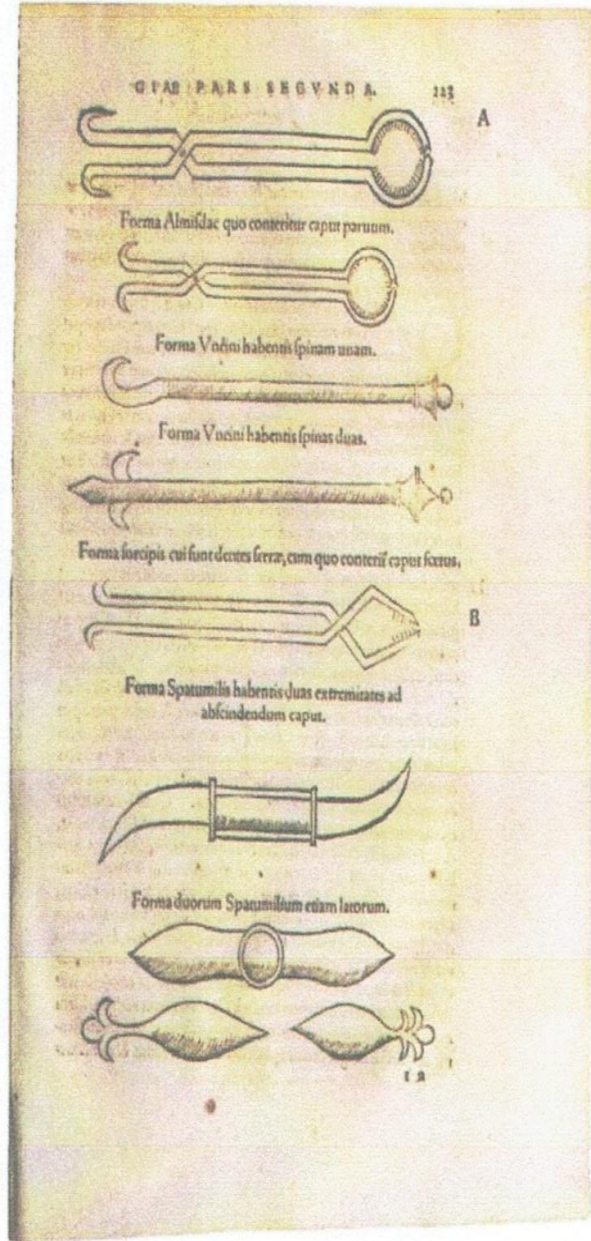 GIAE PARS SEGVNDA. 223
A
Forma Almiſdac quo conteritur caput paruum.
Forma Vncini habentis ſpinam unam.
Forma Vncini habentis ſpinas duas.
Forma forcipis cui ſunt dentes ſerræ, cum quo conterit caput fœtus.
B
Forma Spatumilis habentis duas extremitates ad
abſcindendum caput.
Forma duorum Spatumilium etiam latorum.